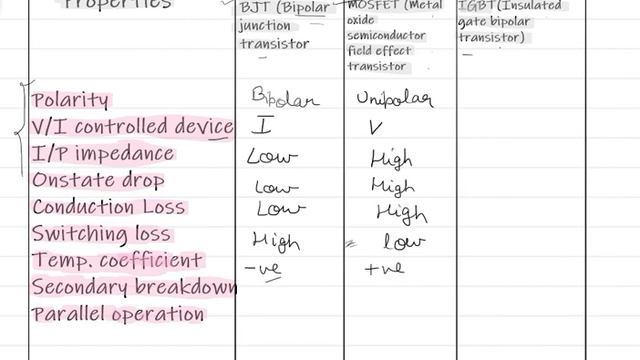 Properties BJT (Bipolar junction transistor MOSFET (Metal oxide semiconductor field effect transistor IGBT(Insulated gate bipolar transistor)
Polarity Bipolar Unipolar
V/I controlled device I V
I/P impedance Low High
Onstate drop Low High
Conduction Loss Low High
Switching loss High low
Temp. coefficient -ve +ve
Secondary breakdown
Parallel operation